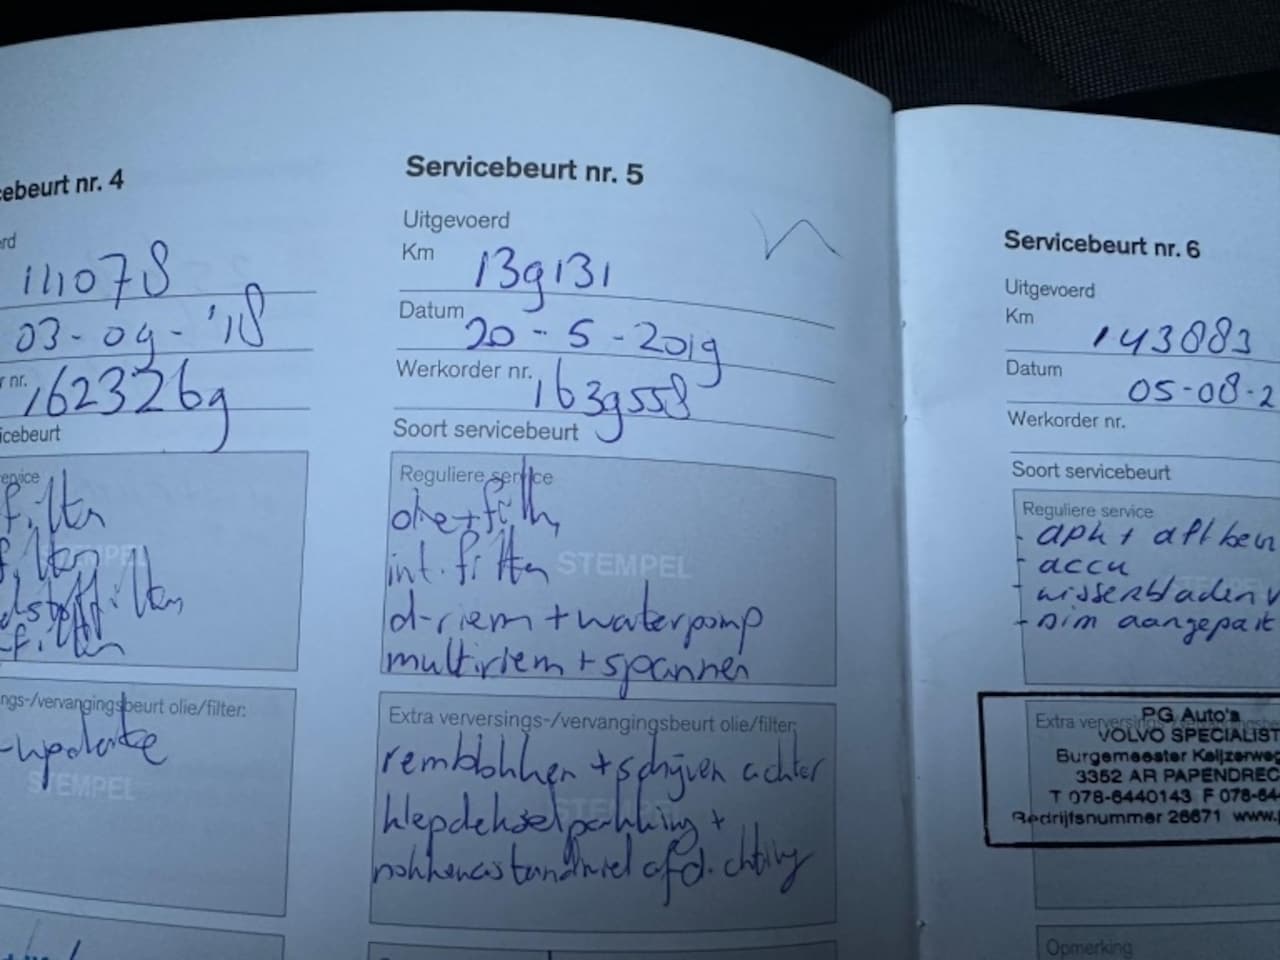 cebeurt nr. 4
rd
111078
03-09-'18
r nr. 1623269
icebeurt
ervice
filter
filter
filter
ngs-/vervangingsbeurt olie/filter:
-update
STEMPEL
Servicebeurt nr. 5
Uitgevoerd
Km 139131
Datum 20-5-2019
Werkorder nr. 1639558
Soort servicebeurt
Reguliere service
olie+filter
int. filter
STEMPEL
d-riem + waterpomp
multiriem + spanner
Extra verversings-/vervangingsbeurt olie/filter:
remblokken + schijven achter
klepdekselpakking +
nokkenastandwiel afdichting
Servicebeurt nr. 6
Uitgevoerd
Km 143883
Datum 05-08-2
Werkorder nr.
Soort servicebeurt
Reguliere service
- apk + aflbeu
- accu
- wisserbladen v
- sim aangepast
Extra verversings
PG Auto's
VOLVO SPECIALIST
Burgemeester Keijzerweg
3352 AR PAPENDREC
T 078-6440143 F 078-64
Bedrijfsnummer 26671 www.
Opmerking